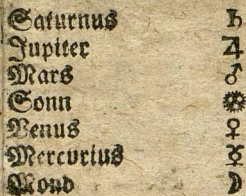 Saturnus ♄
Jupiter ♃
Mars ♂
Sonn ☼
Venus ♀
Mercurius ☿
Mond ☽